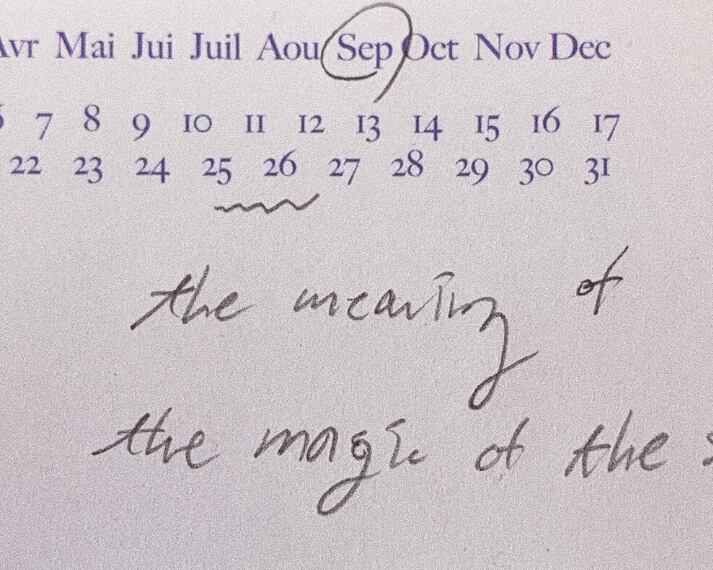 Avr Mai Jui Juil Aou Sep Oct Nov Dec
7 8 9 10 11 12 13 14 15 16 17
22 23 24 25 26 27 28 29 30 31
the meaning of
the magic of the